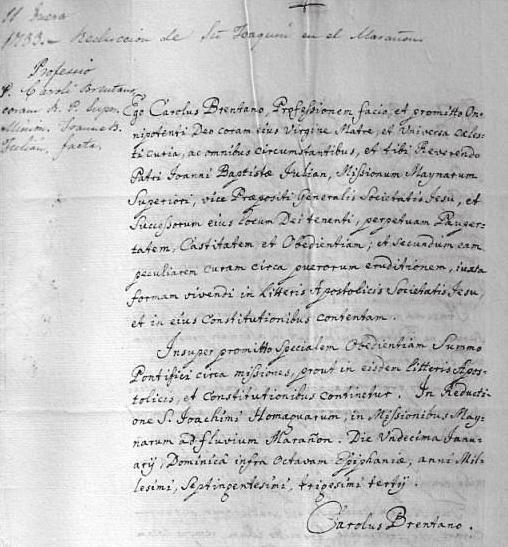 11 Enero
1733.- Reduccion de Sn Joaquin en el Marañon
Professio
P. Caroli Brentano
coram R. P. Super.
Mission. Joanne B.
Julian, facta.
Ego Carolus Brentano, Professionem facio, et promitto Om-
nipotenti Deo coram eius Virgine Matre, et Universa Cæles-
ti curia, ac omnibus circumstantibus, et tibi Reverendo
Patri Ioanni Baptistæ Iulian, Missionum Maynarum
Superiori, vice Præpositi Generalis Societatis Iesu, et
Successorum eius locum Dei tenenti, perpetuam Pauper-
tatem, Castitatem et Obedientiam; et secundum eam
peculiarem curam circa puerorum eruditionem, iuxta
formam vivendi in Litteris Apostolicis Societatis Iesu,
et in eius Constitutionibus contentam.
Insuper promitto Specialem Obedientiam Summo
Pontifici circa missiones, prout in eisdem Litteris Apos-
tolicis, et Constitutionibus continetur. In Reducti-
one S. Ioachimi Homaguarum, in Missionibus May-
narum ad fluvium Marañon. Die Vndecima Ianu-
arij, Dominica infra Octavam Epiphaniæ, anni Mil-
lesimi, Septingentesimi, trigesimi tertij.
Carolus Brentano.